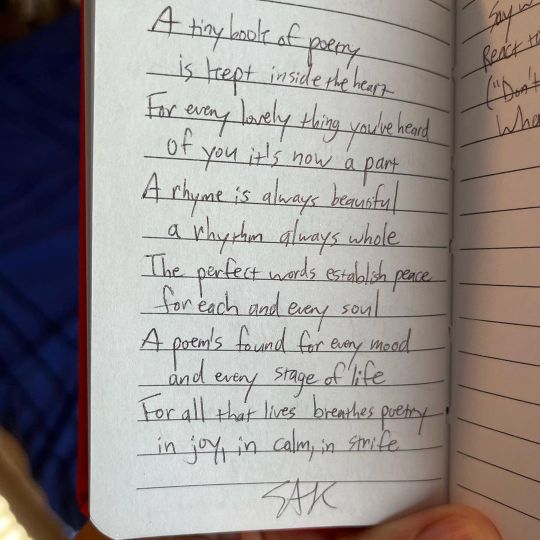 A tiny book of poetry
is kept inside the heart
For every lovely thing you've heard
of you it's now a part
A rhyme is always beautiful
a rhythm always whole
The perfect words establish peace
for each and every soul
A poem's found for every mood
and every stage of life
For all that lives breathes poetry
in joy, in calm, in strife
SAK
Say
React to
("Don't